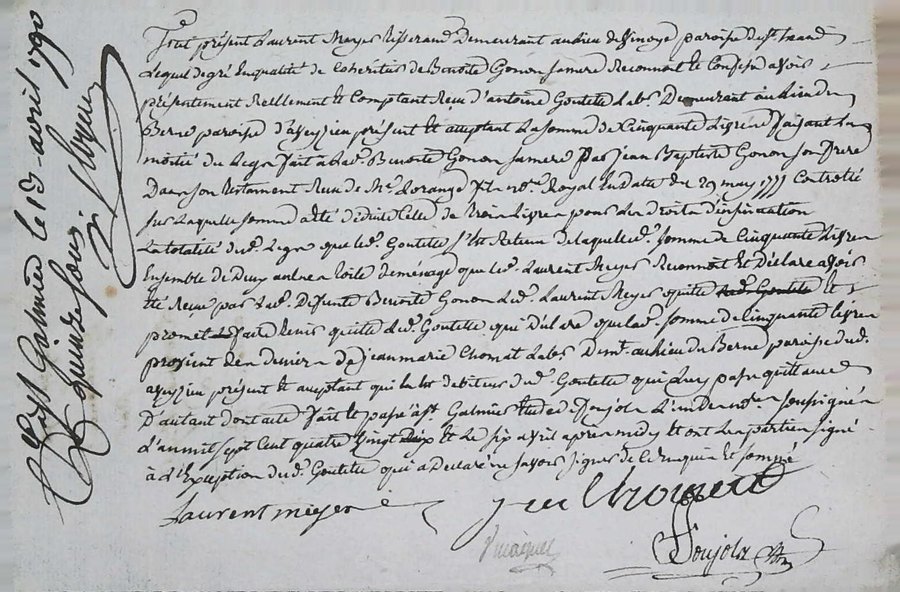 fut présent Laurent Meyer tisserand Demeurant au lieu de paroisse de st
Lequel de gré En qualité de Coheritier de Benoite Gonon sa mere Reconnoit et Confesse avoir
présentement Rellement et Comptant Reçu d'antoine Goutette Labr. Demeurant au Lieu du
Berne paroisse d'aveyzieu présent et aceptant La somme de Cinquante Livres faisant La
moitié du Legs fait a lad. Benoite Gonon sa mere Par jean Baptiste Gonon son frere
Dans son testament Reçu de Me. Lorange Et nore. Royal En Date du 29 may 1777 Controllé
sur Laquelle somme a été déduite Celle de trois Livres pour Les Droits d'insinuation
La totalité dud. Legs que led. Goutette s'est Retenu de laquelle d. somme de Cinquante Livres
Ensemble de Deux autres toile de ménage que led. Laurent Meyer Reconnoit Et Déclare avoir
été Reçue par lad. Defunte Benoite Gonon Led. Laurent Meyer quitte led. Goutette et
promet Le faire tenir quitte Led. Goutette qui Déclare que lad. somme de cinquante livres
provient des deniers de jean marie Chomat Labr. Demt. au lieu du Berne paroisse dud.
aveyzieu présent et aceptant qui La lot debiteur dud. Goutette qui Luy passe quittance
D'autant dont acte fait et passé à st Galmier Etude Ponjola L'un des nores. soussignés
L'an mil sept Cent quatre vingt dix et Le six avril après midy et ont Les parties signé
à L'Exception dud. Goutette qui a Declaré ne savoir signer de ce Enquis et sommé
Laurent meyer
j m Chomat
Ponjola
Ctlé à st Galmier le 13 avril 1790
Reçu quinze sous